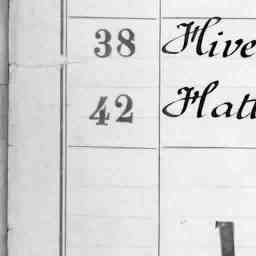 38 Hive
42 Hatt